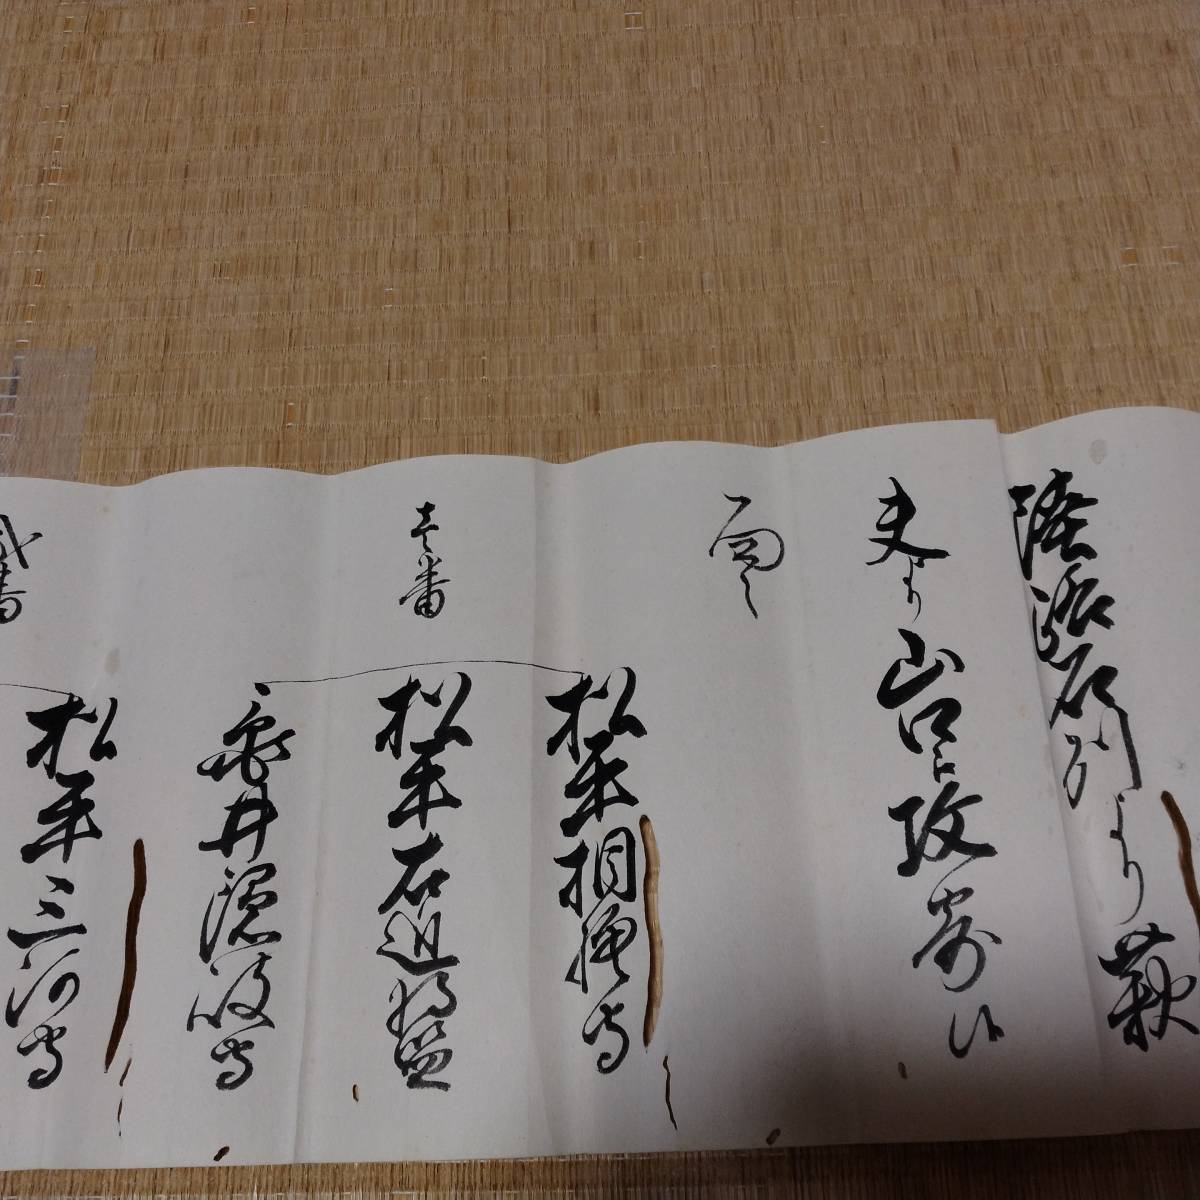 陸路石州より萩
夫より山口に攻寄候
面々
松平相模守
壱番
松平右近将監
亀井隠岐守
弐番
松平三河守